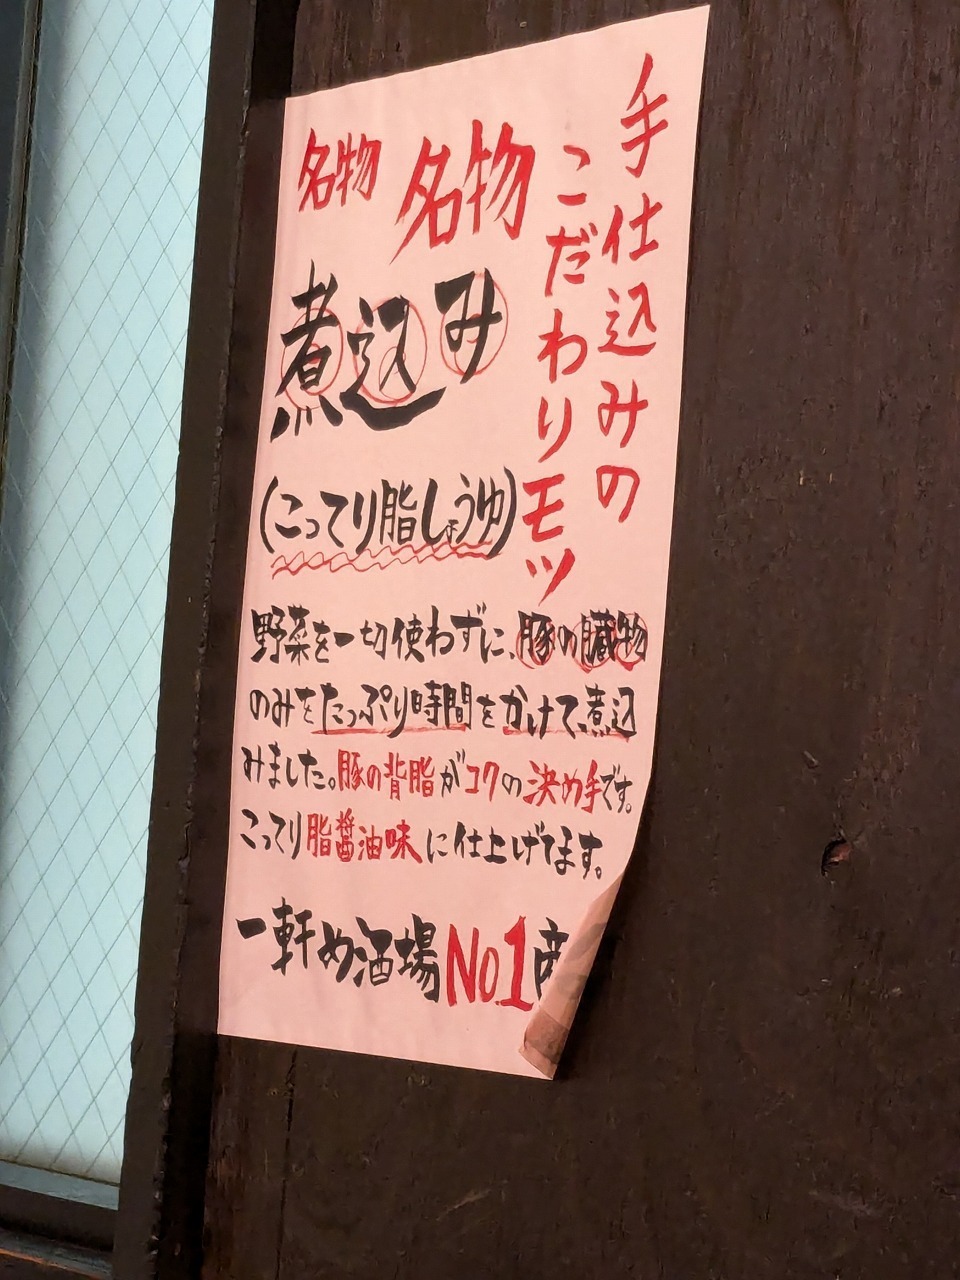 手仕込みの
こだわりモツ
名物 名物
煮込み
(こってり脂しょうゆ)
野菜を一切使わずに、豚の臓物
のみをたっぷり時間をかけて煮込
みました。豚の背脂がコクの決め手です。
こってり脂醤油味に仕上げてます。
一軒め酒場No.1